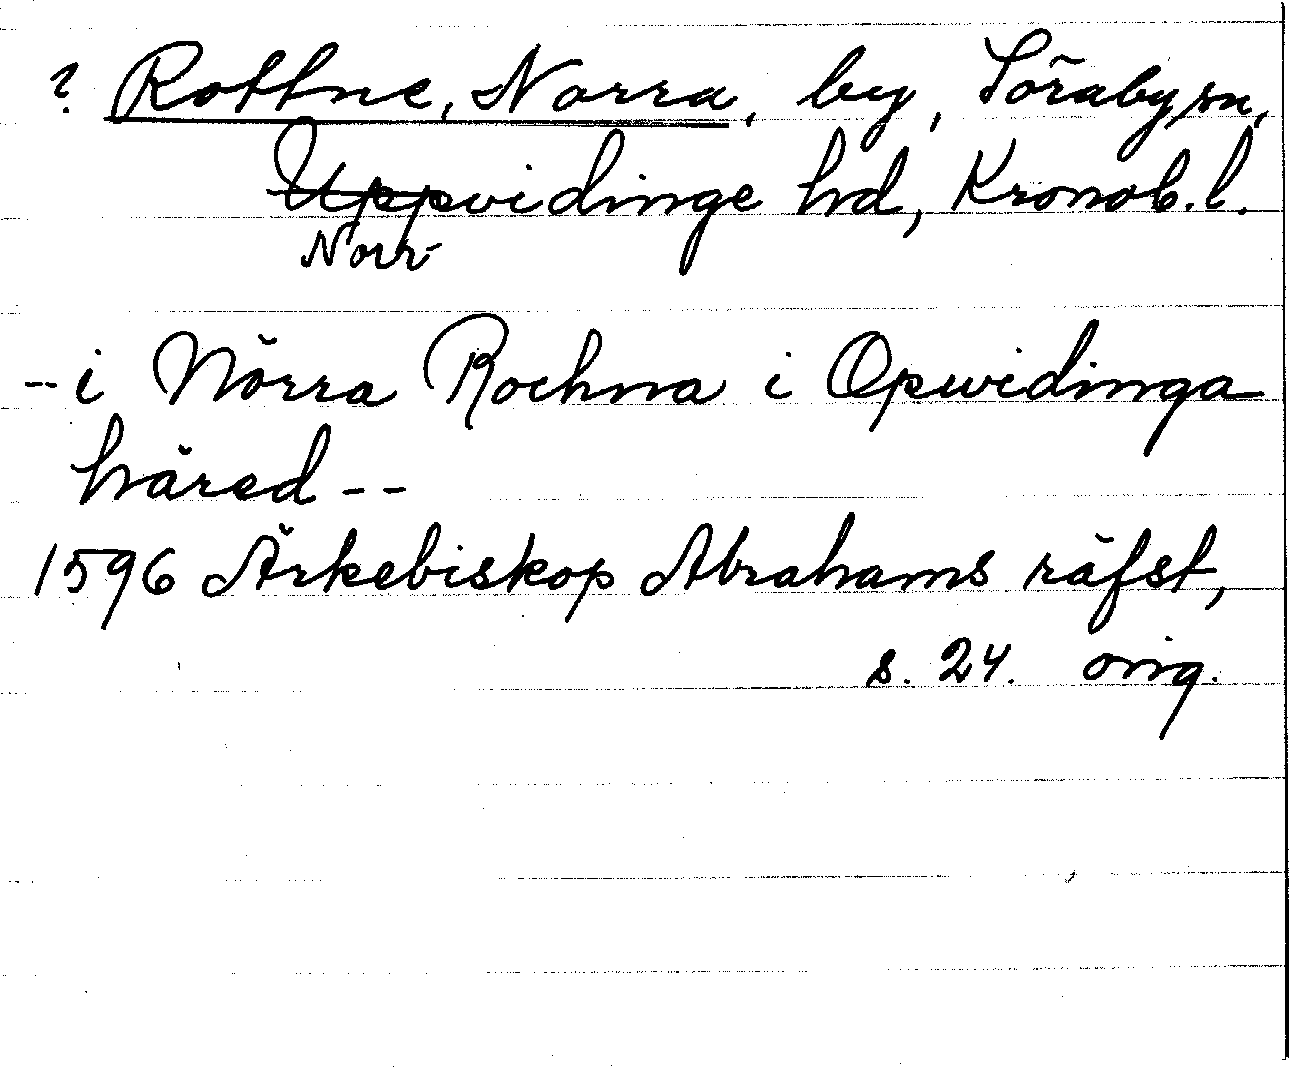 ? Rottne, Norra, by, Söraby sn,
Uppvidinge hd, Kronob. l.
Norr-
-- i Nörra Rochna i Opwidinga
härad --
1596 Ärkebiskop Abrahams räfst,
s. 24. orig.